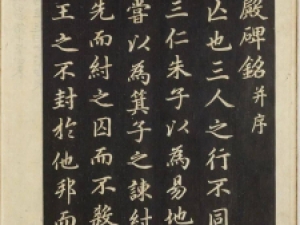 殿碑銘并序
亾也三人之行不同
三仁朱子以為易地
嘗以為箕子之諫紂
先而紂之囚而不殺
王之不封於他邦而